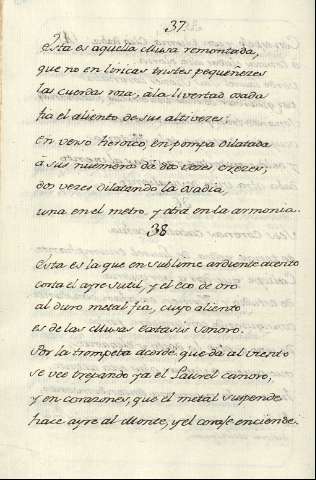 37.
Esta es aquella Musa remontada,
que no en liricas tristes pequeñezes
las cuerdas roza; à la livertad osada
fia el aliento de sus altiveres:
En verso heroico, en pompa dilatada
à sus numeros da dos vezes crezes;
dos vezes dilatando la osadia,
una en el metro, y otra en la armonia.
38
Esta es la que en sublime ardiente acento
corta el ayre sutil, y el eco de oro
al duro metal fia, cuyo aliento
es de las Musas extasis sonoro.
Por la trompeta acorde que da al viento
se vee trepando ya el Laurel canoro,
y en corazones, que el metal suspende
hace ayre al Monte, y el coraje enciende.